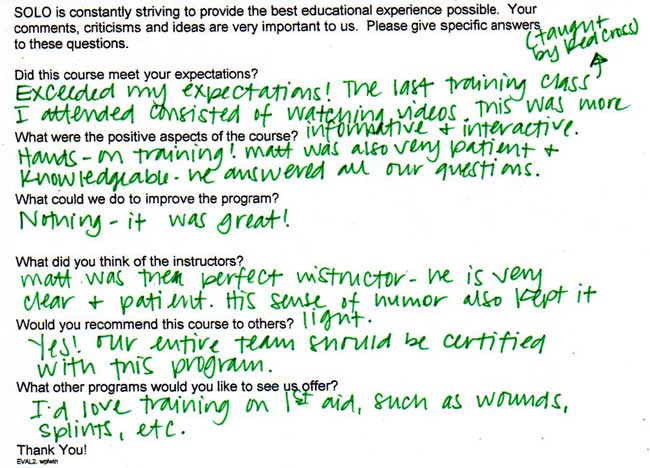 SOLO is constantly striving to provide the best educational experience possible. Your
comments, criticisms and ideas are very important to us. Please give specific answers
to these questions.
(taught
by Red Cross)
Did this course meet your expectations?
Exceeded my expectations! The last training class
I attended consisted of watching videos. This was more
informative + interactive.
What were the positive aspects of the course?
Hands-on training! Matt was also very patient +
knowledgeable - he answered all our questions.
What could we do to improve the program?
Nothing - it was great!
What did you think of the instructors?
Matt was the perfect instructor - he is very
clear + patient. His sense of humor also kept it
light.
Would you recommend this course to others?
Yes! Our entire team should be certified
with this program.
What other programs would you like to see us offer?
I'd love training on 1st aid, such as wounds,
splints, etc.
Thank You!
EVAL2. wpfwin